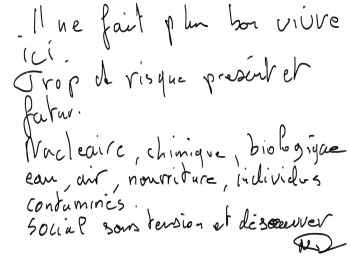 . Il ne fait plus bon vivre
ici.
Trop de risque présent et
futur.
Nucléaire, chimique, biologique
eau, air, nourriture, individus
contaminés.
Social sous tension et